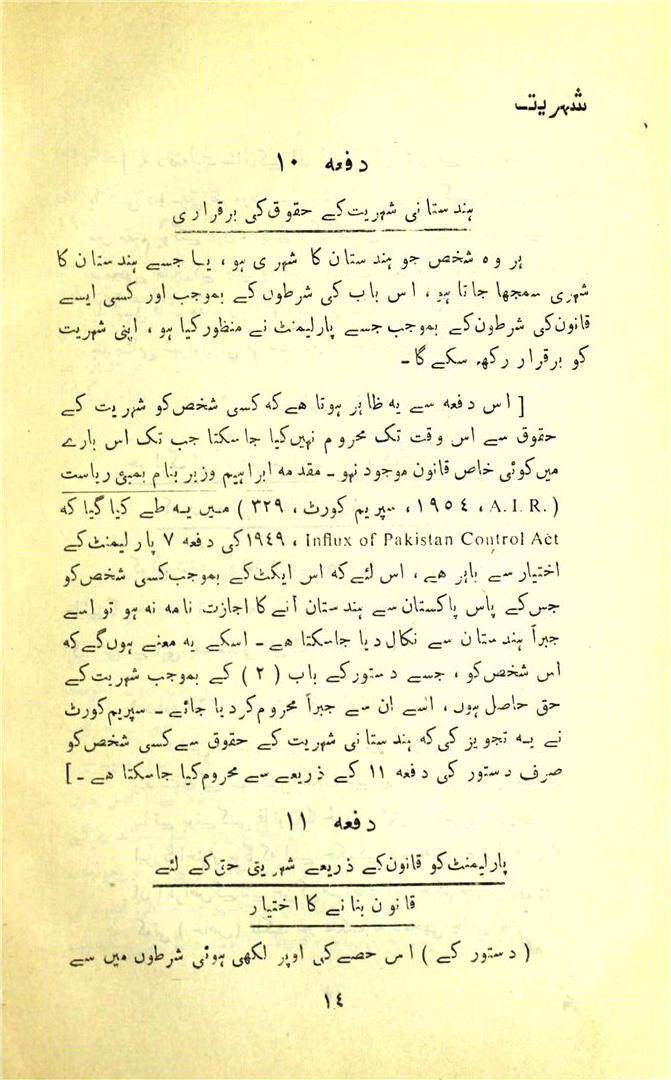 شہریت
دفعہ ۱۰
ہندستانی شہریت کے حقوق کی برقراری
ہر وہ شخص جو ہندستان کا شہری ہو، یا جسے ہندستان کا
شہری سمجھا جاتا ہو، اس باب کی شرطوں کے بموجب اور کسی ایسے
قانون کی شرطوں کے بموجب جسے پارلیمنٹ نے منظور کیا ہو، اپنی شہریت
کو برقرار رکھ سکے گا۔
[ اس دفعہ سے یہ ظاہر ہوتا ہے کہ کسی شخص کو شہریت کے
حقوق سے اس وقت تک محروم نہیں کیا جا سکتا جب تک اس بارے
میں کوئی خاص قانون موجود نہو۔ مقدمہ ابراہیم وزیر بنام بمبئی ریاست
(A. I. R. ، ۱۹۵٤ ، سپریم کورٹ، ۳۲۹) میں یہ طے کیا گیا کہ
Influx of Pakistan Control Act ، ۱۹٤۹ کی دفعہ ۷ پارلیمنٹ کے
اختیار سے باہر ہے، اس لئے کہ اس ایکٹ کے بموجب کسی شخص کو
جس کے پاس پاکستان سے ہندستان آنے کا اجازت نامہ نہ ہو تو اسے
جبراً ہندستان سے نکال دیا جاسکتا ہے۔ اسکے یہ معنے ہوں گے کہ
اس شخص کو، جسے دستور کے باب (۲) کے بموجب شہریت کے
حق حاصل ہوں، اسے ان سے جبراً محروم کر دیا جائے۔ سپریم کورٹ
نے یہ تجویز کی کہ ہندستانی شہریت کے حقوق سے کسی شخص کو
صرف دستور کی دفعہ ۱۱ کے ذریعے سے محروم کیا جاسکتا ہے۔ ]
دفعہ ۱۱
پارلیمنٹ کو قانون کے ذریعے شہریتی حق کے لئے
قانون بنانے کا اختیار
(دستور کے) اس حصے کی اوپر لکھی ہوئی شرطوں میں سے
۱٤